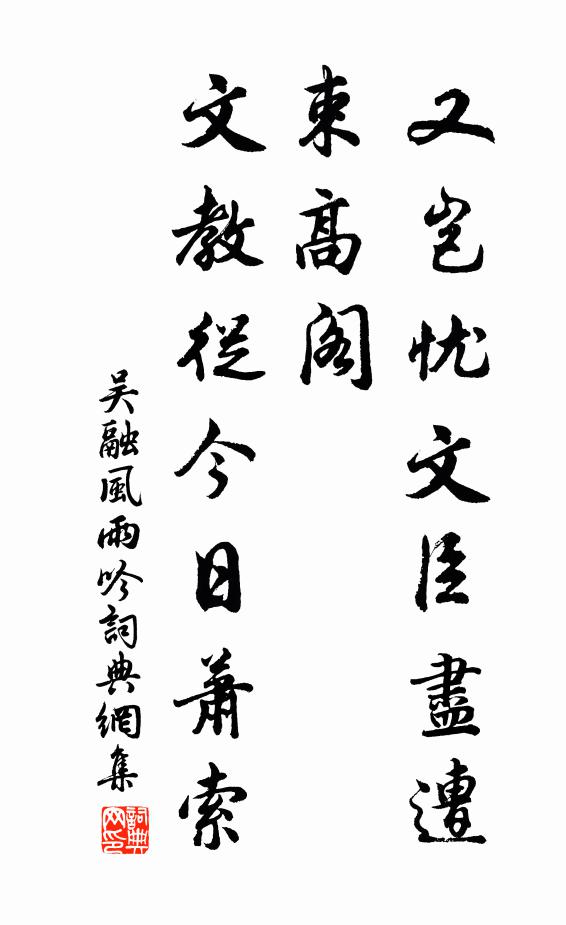 又豈忧文臣盡遭
束高閣
文教從今日蕭索
吳融風雨吟詞典網集
詞典网印